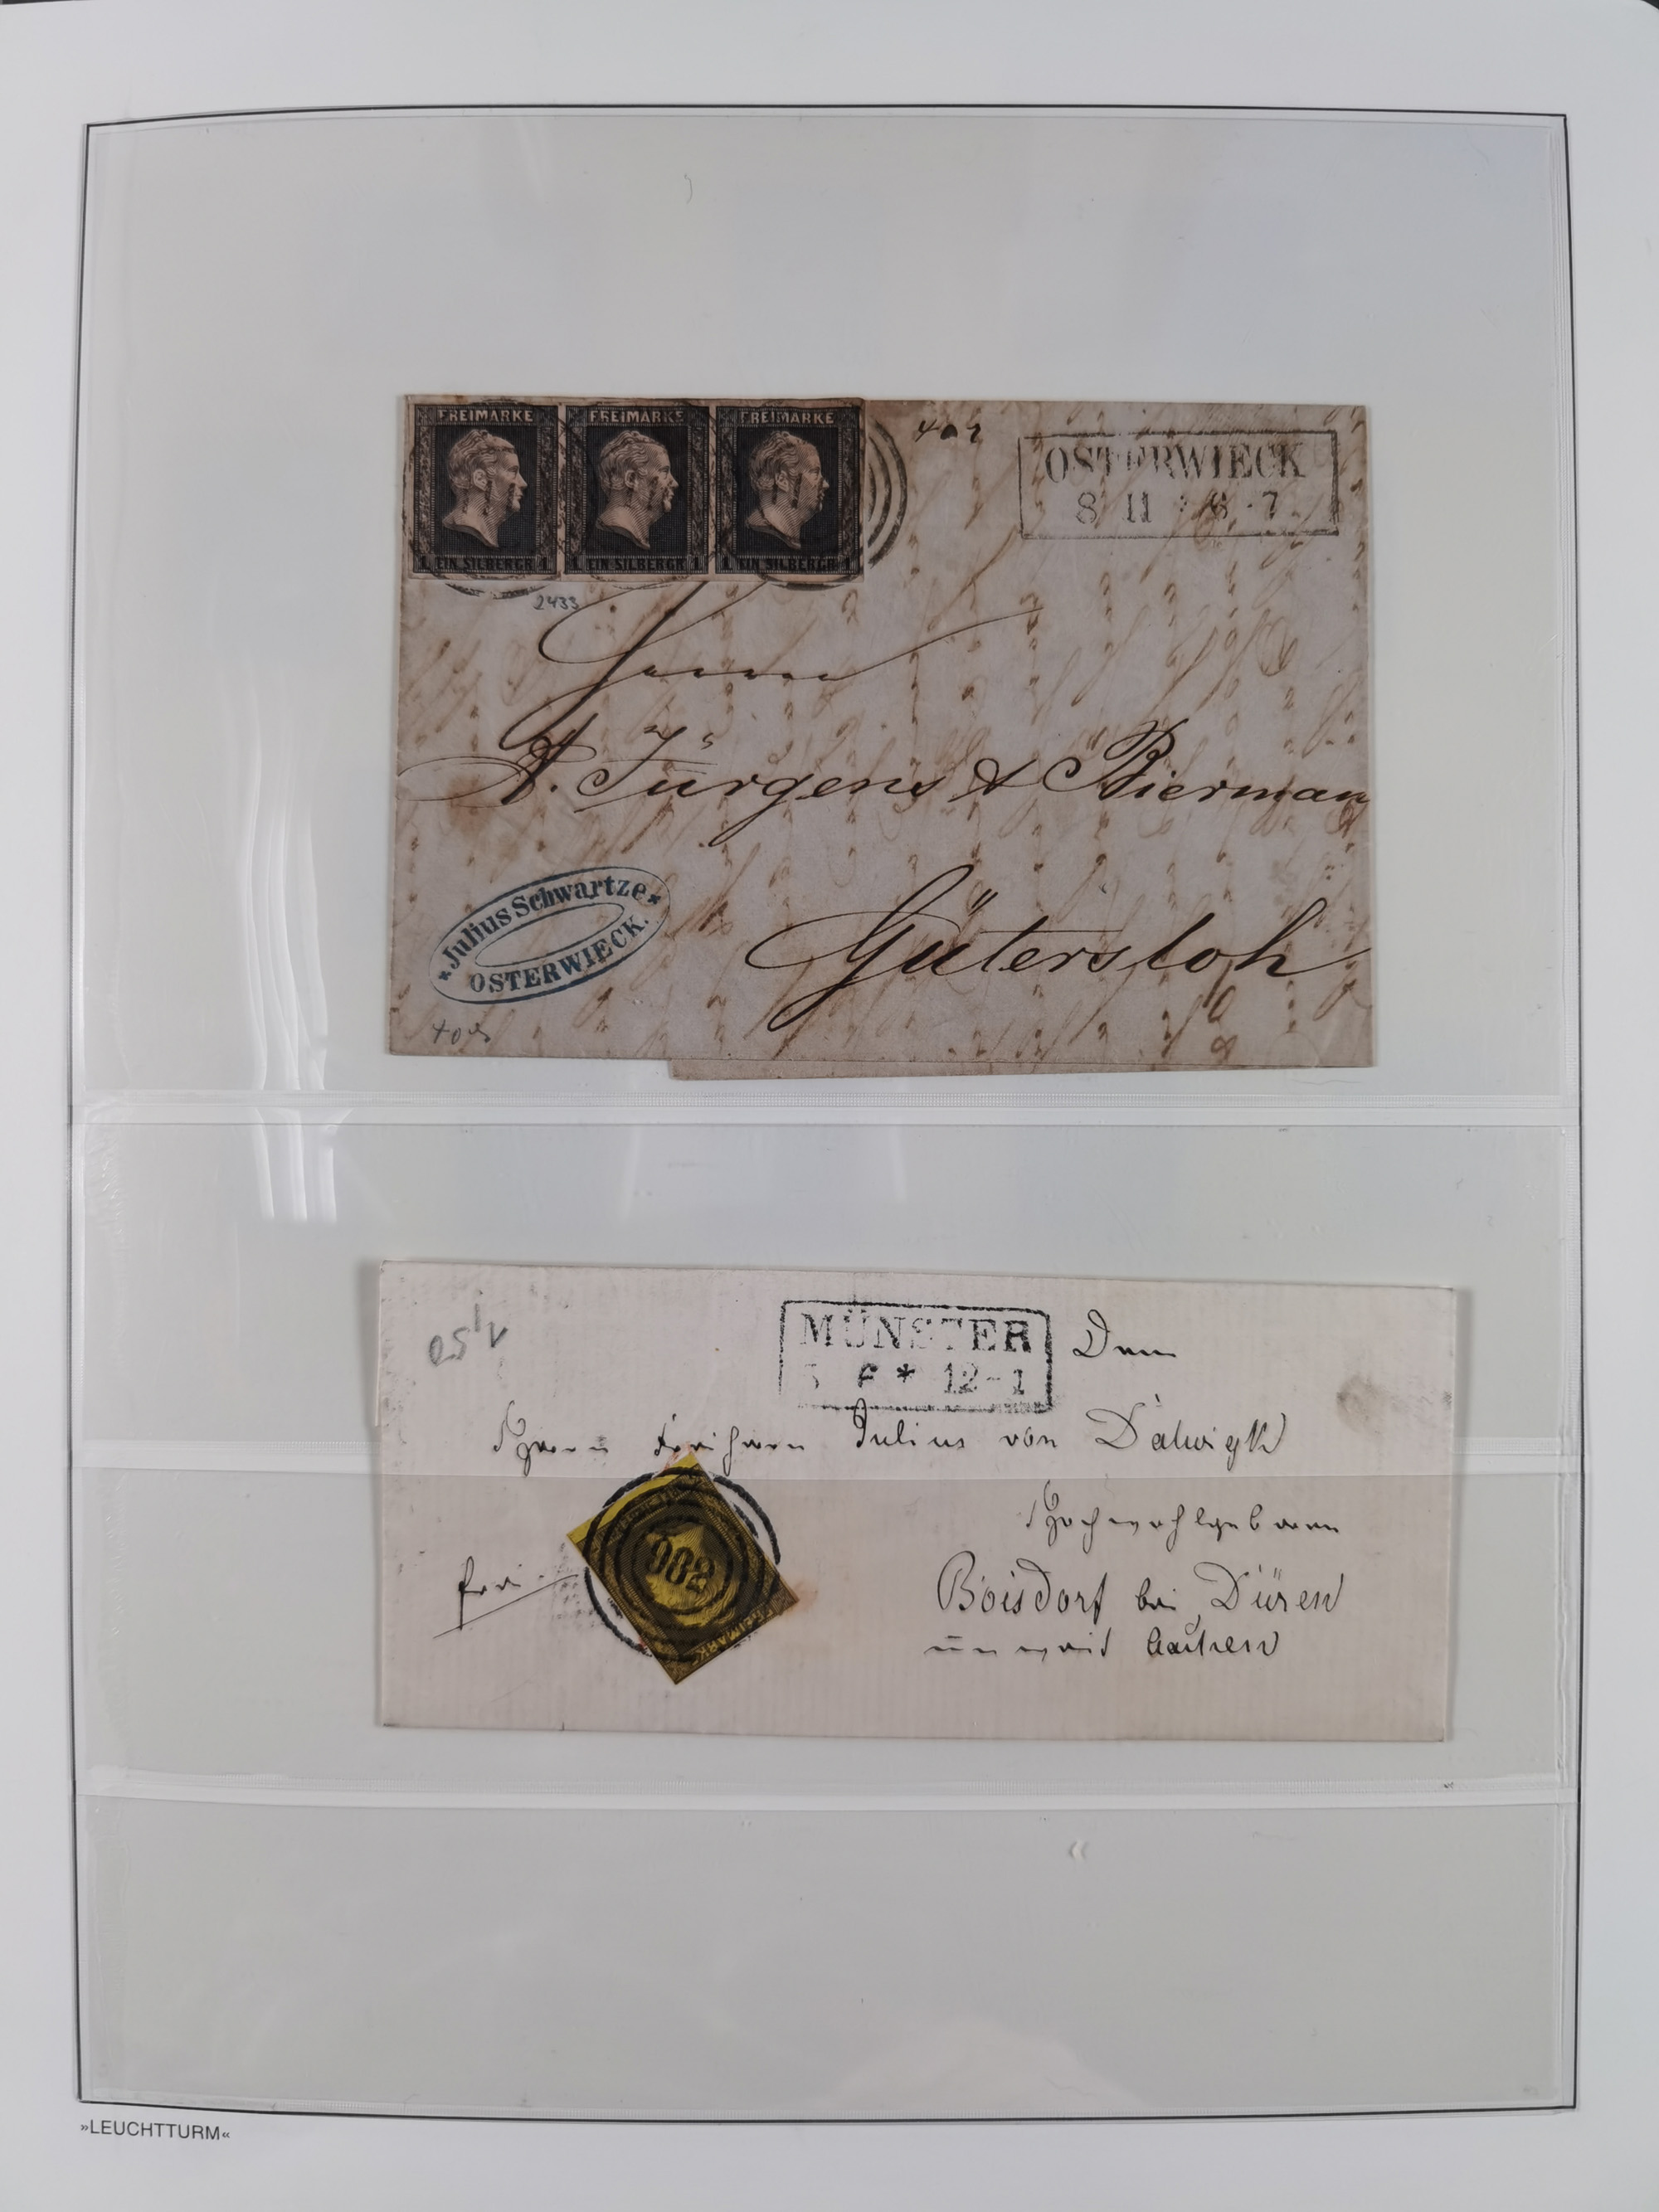 FREIMARKE FREIMARKE FREIMARKE
1 EIN SILBERGR 1 1 EIN SILBERGR 1 1 EIN SILBERGR 1
OSTERWIECK
8 11 6-7
2433
Herrn
A. Jürgens & Bierman
Gütersloh
*Julius Schwartze*
OSTERWIECK.
MÜNSTER
5 F * 12-1
Dem
Herrn Freiherrn Julius von Dalwigk
Hochwohlgeboren
frei
982
FREIMARKE
Boisdorf bei Düren
unweit Aachen
»LEUCHTTURM«